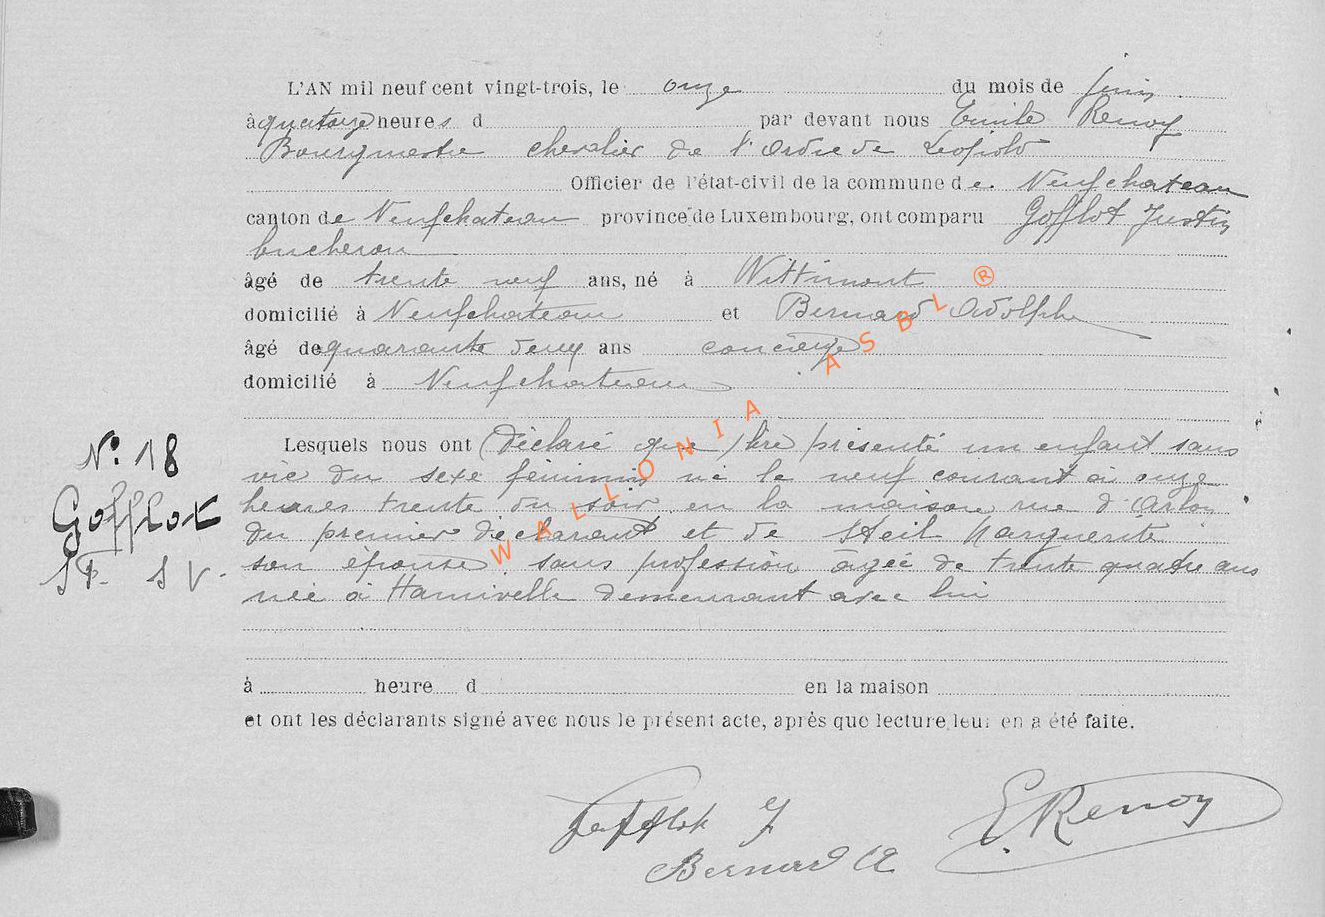 L'AN mil neuf cent vingt-trois, le onze du mois de juin
à quatorze heures d par devant nous Emile Renoy
Bourgmestre chevalier de l'Ordre de Léopold
Officier de l'état-civil de la commune de Neufchateau
canton de Neufchateau province de Luxembourg, ont comparu Gofflot Justin
bucheron
âgé de trente neuf ans, né à Wittimont
domicilié à Neufchateau et Bernard Adolphe
âgé de quarante deux ans concierge
domicilié à Neufchateau
Lesquels nous ont (déclaré que) être présenté un enfant sans
vie du sexe féminin né le neuf courant à onze
heures trente du soir en la maison rue d'Arlon
du premier déclarant et de Steil Marguerite
son épouse sans profession âgée de trente quatre ans
née à Hamivelle demeurant avec lui
à heure d en la maison
et ont les déclarants signé avec nous le présent acte, après que lecture leur en a été faite.
N° 18
Gofflot
S V.
Gofflot J
Bernard A
E. Renoy
WALLONIA ASBL ®